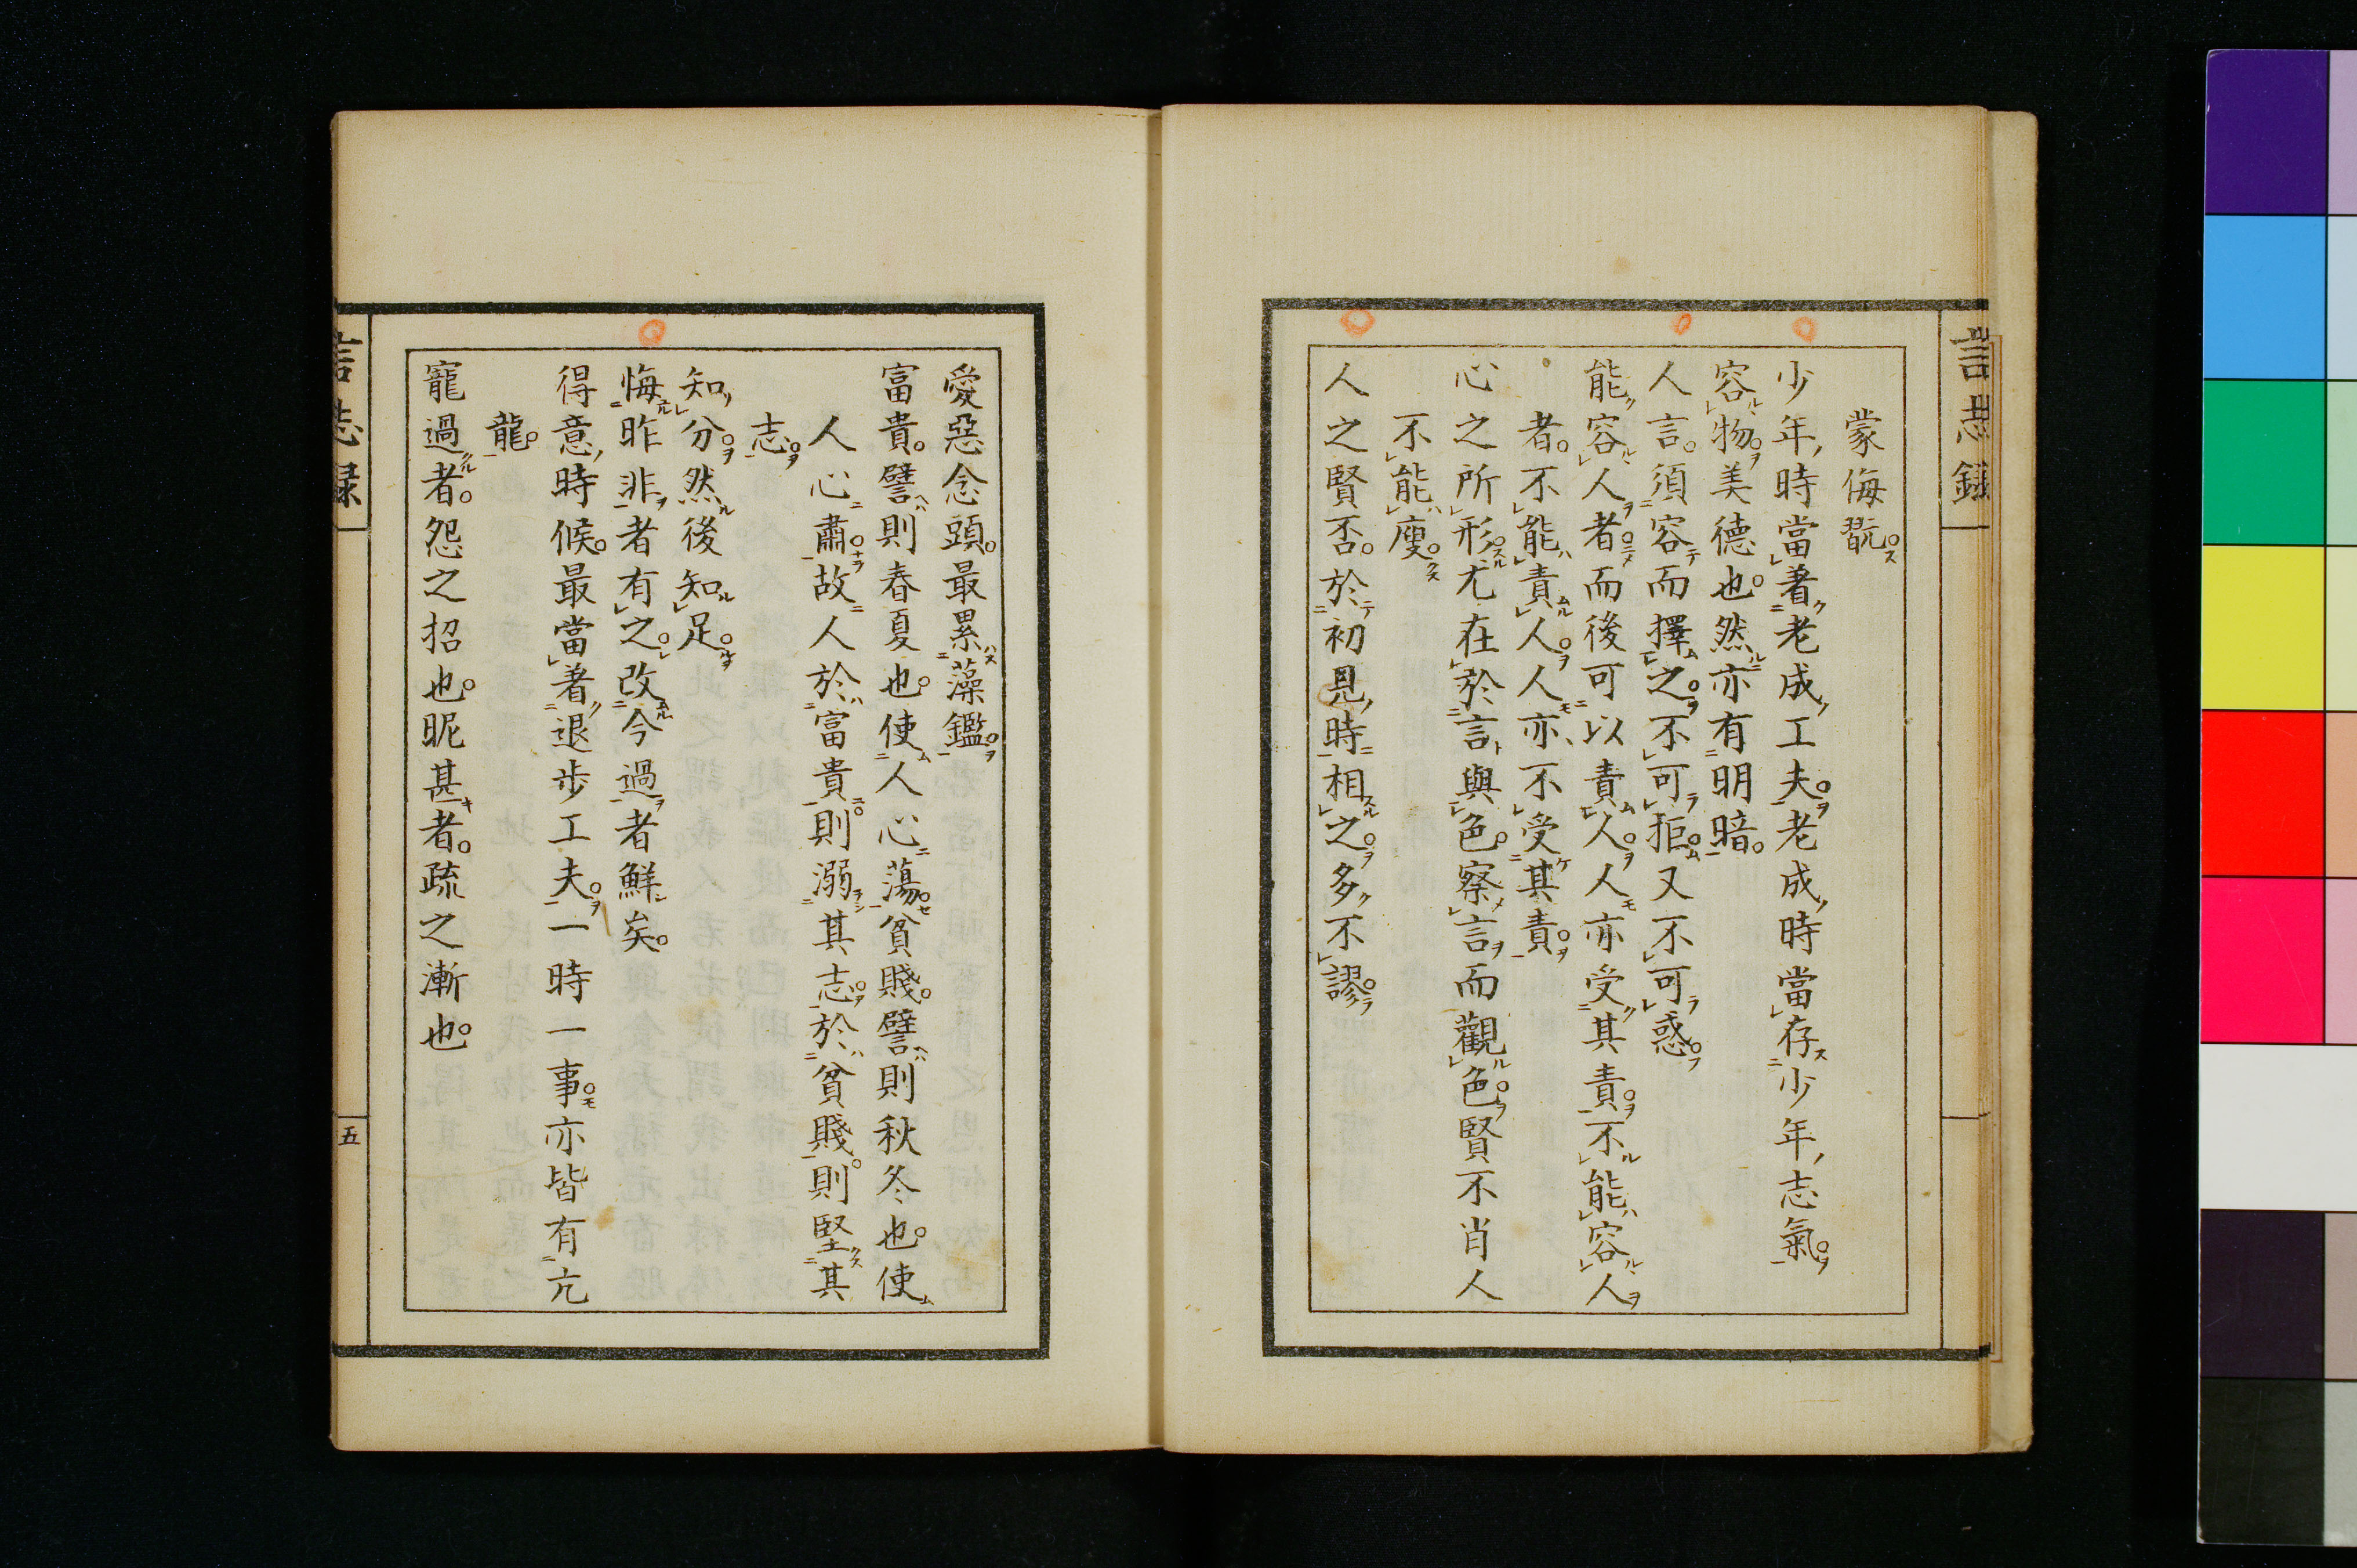 言志録
蒙侮翫
少年時當著老成工夫老成時當存少年志氣
容物美德也然亦有明暗
人言須容而擇之不可拒又不可惑
能容人者而後可以責人人亦受其責不能容人
者不能責人人亦不受其責
心之所形尤在於言與色察言而觀色賢不肖人
不能廋
人之賢否於初見時相之多不謬
愛惡念頭最累藻鑑
富貴譬則春夏也使人心蕩貧賤譬則秋冬也使
人心肅故人於富貴則溺其志於貧賤則堅其
志
知分然後知足
悔昨非者有之改今過者鮮矣
得意時候最當著退步工夫一時一事亦皆有亢
龍
寵過者怨之招也昵甚者疏之漸也
言志録
五